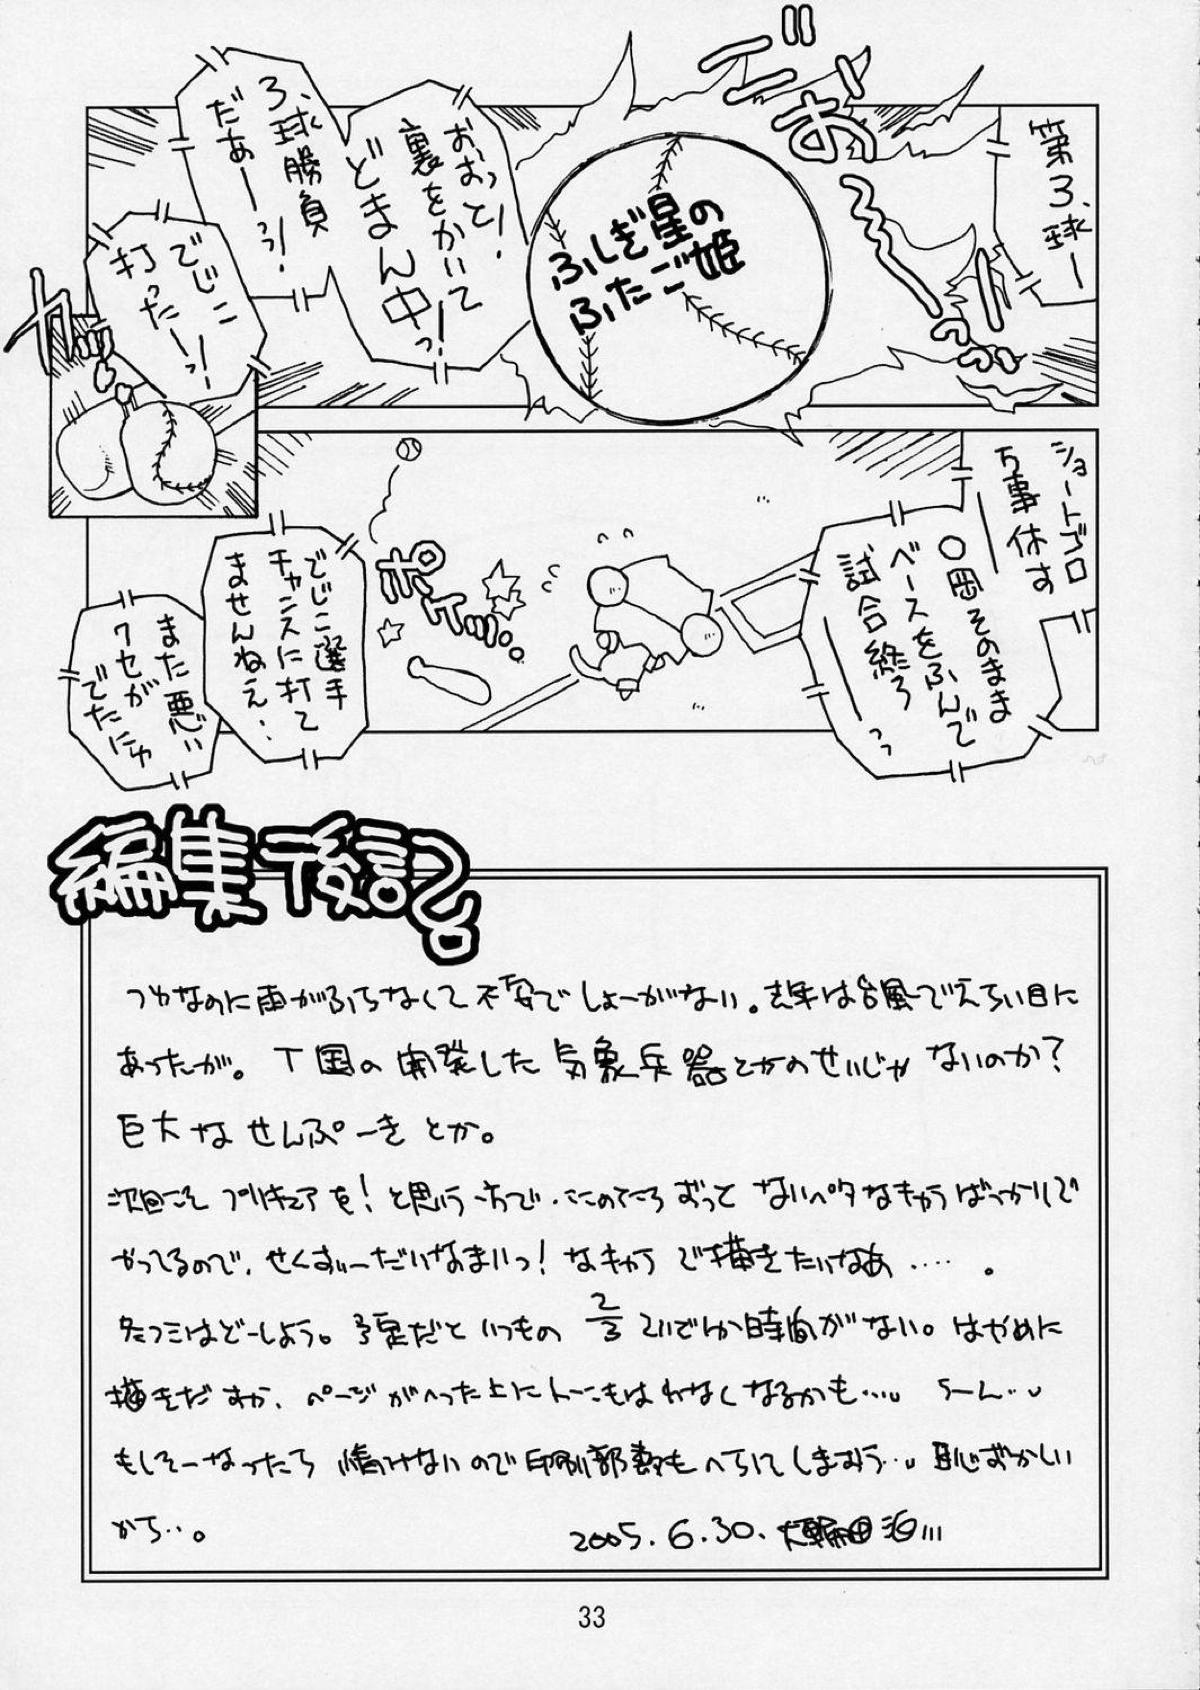 第3、球ー
ゴおぉ〜〜っっっ
ふしぎ星の
ふたご姫
おおっと!
裏をかいて
どまん中っ!
3、球勝負
だあーっ!
でじこ
打ったーっ!
カッ
ショートゴロ
万事休す
〇岡そのまま
ベースをふんで
試合終ろーっっ
ポケッ
でじこ選手
チャンスに打て
ませんねえ、
また悪い
クセが
でたにゅ
編集後記
つゆなのに雨がふらなくて不安でしょーがない。去年は台風でえらい目に
あったが。T国の開発した気象兵器とかのせいじゃないのか?
巨大なせんぷーきとか。
次回こそプリキュアを!と思う一方で、ここのところずっとないペタなキャラばっかしで
やってるので、せくすぃーだいなまいっ!なキャラで描きたいなあ……。
冬コミはどーしよう。予定だといつもの2/3くらいでしか時間がない。はやめに
描きだすか、ページがへった上にトーンもはれなくなるかも…。うーん…。
もしそーなったら情けないので印刷部数もへらしてしまおう…。恥ずかしい
から…。
2005.6.30.
33